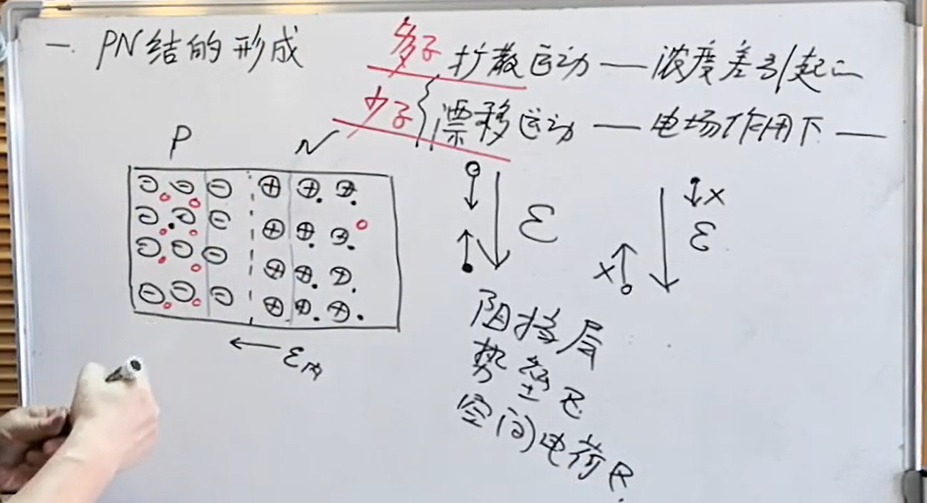 一. PN结的形成
多子 扩散运动 — 浓度差引起—
少子 漂移运动 — 电场作用下 —
P N
ε
× ε
×
ε内
阻挡层
势垒区
空间电荷区